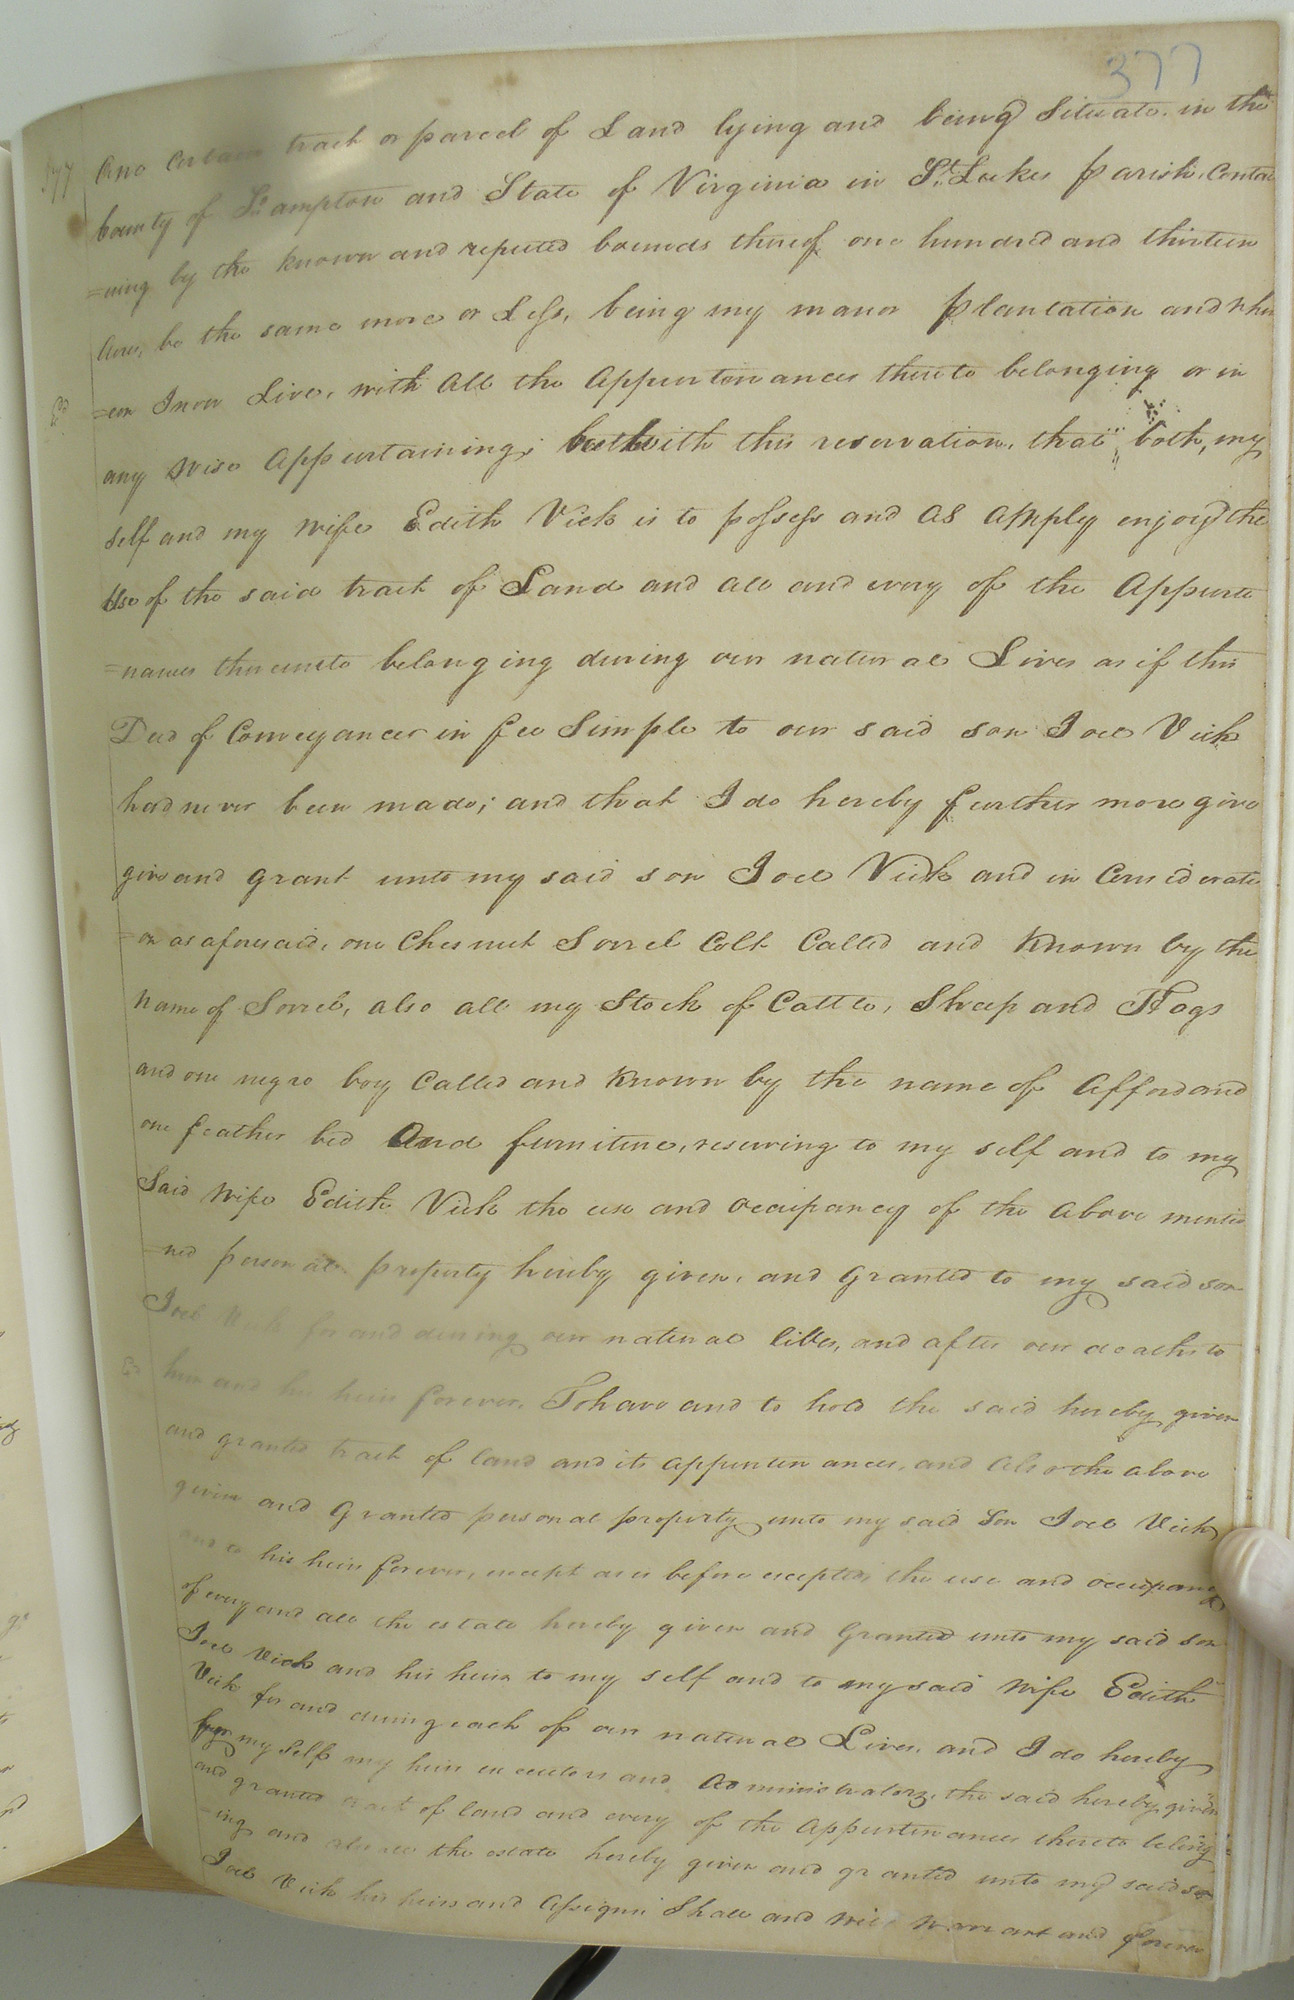 377
377
One certain track or parcel of Land lying and being Situate in the
County of So.ampton and State of Virginia in St. Lukes parish, Contai
=ning by the known and reputed bounds thereof one hundred and thirteen
Acres, be the same more or Less, being my manor plantation and wher
=eon I now Live, with All the Appurtenances thereto belonging or in
any wise Appurtaining; but with this reservation, that both, my
self and my wife Edith Vick is to possess and as Amply enjoy the
Use of the said track of Land and all and every of the Appurte
=nances thereunto belonging during our natural Lives as if this
Deed of Conveyances in fee Simple to our said son Joel Vick
had never been made; and that I do hereby further more give
give and grant unto my said son Joel Vick and in Considerati
=on as aforesaid, one Chesnut Sorrel Colt Called and Known by the
name of Sorrel, also all my Stock of Cattle, Sheep and Hogs
and one negro boy Called and Known by the name of Afford and
one feather bed And furniture, reserving to my self and to my
Said Wife Edith Vick the use and occupancy of the above mentio
=ned personal property hereby given, and Granted to my said son
Joel Vick for and during our natural lives, and after our deaths to
him and his heirs forever. To have and to hold the said hereby given
and granted track of land and its appurtenances, and also the above
given and Granted personal property unto my said Son Joel Vick
and to his heirs forever, except as is before excepted, the use and occupancy
of every and all the estate hereby given and Granted unto my said son
Joel Vick and his heirs to my self and to my said Wife Edith
Vick for and during each of our natural Lives. and I do hereby
for my self my heirs executors and Administrators, the said hereby given
and granted track of land and every of the Appurtenances thereto belong
=ing and also all the estate hereby given and granted unto my said son
Joel Vick his heirs and Assigns Shall and will Warrant and forever